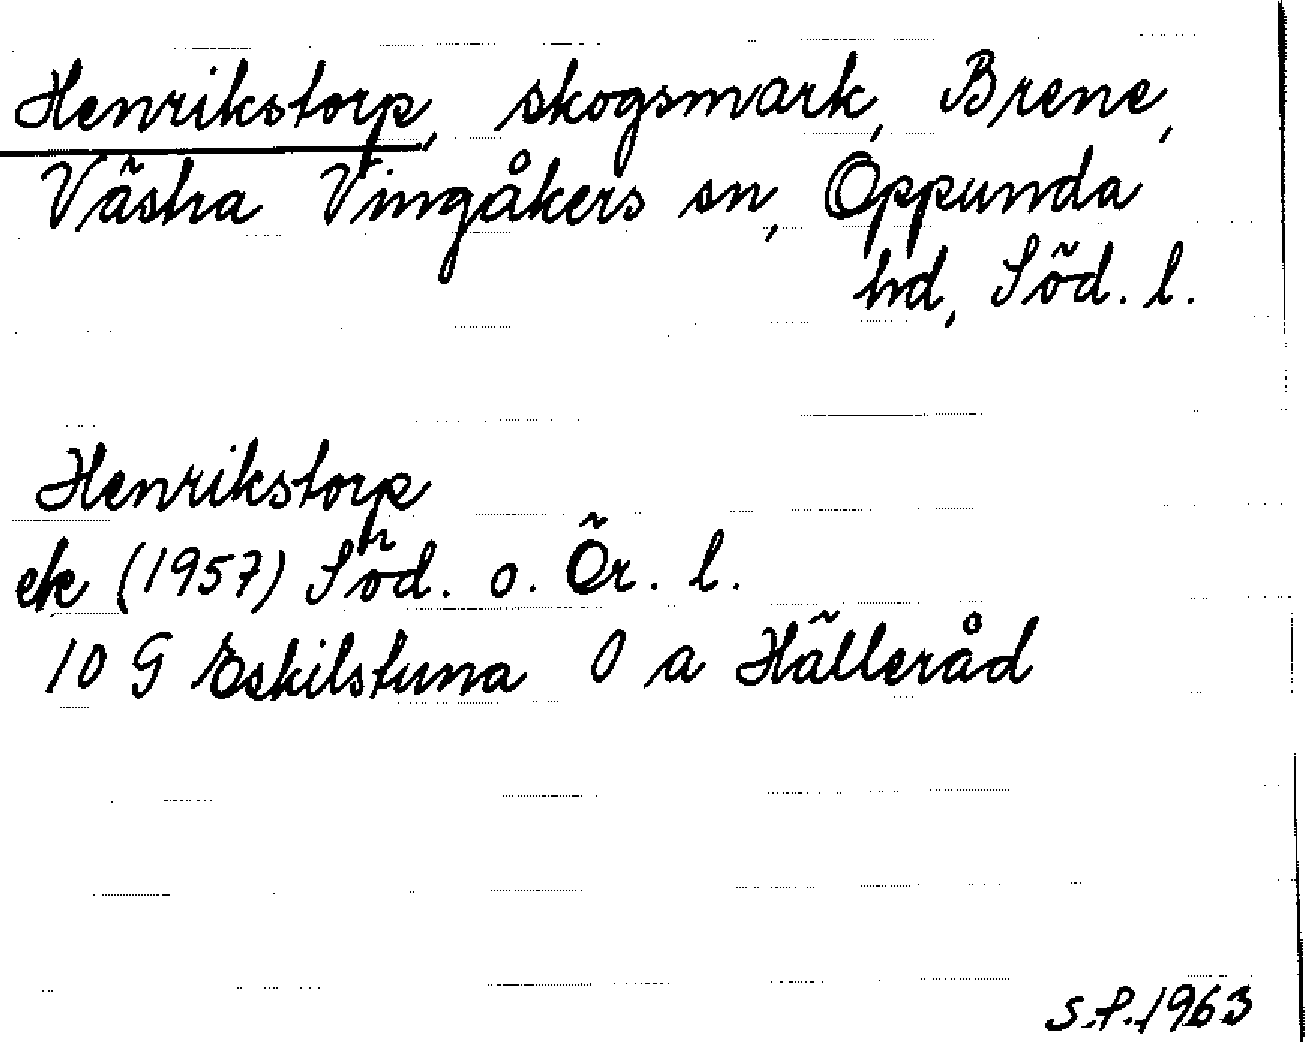 Henrikstorp, skogsmark, Brene,
Västra Vingåkers sn, Oppunda
hd, Söd. l.
Henrikstorp
ek (1957) Söd. o. Ör. l.
10 G Eskilstuna 0 a Hälleråd
S.P. 1963